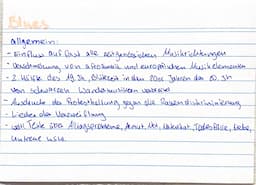 Blues
Allgemein:
- Einfluss auf fast alle zeitgenössischen Musikrichtungen
- Verschmelzung von afroamerik. und europäischen Musikelementen
- 2. Hälfte des 19. Jh, Blütezeit in den 20er Jahren des 20. Jh
von schwarzen Wandermusikern verbreitet
- Ausdruck der Protesthaltung gegen die Rassendiskriminierung
- Lieder der Verzweiflung
- will Texte über Alltagsprobleme, Armut, Not, Todesfälle, Liebe,
Untreue usw.